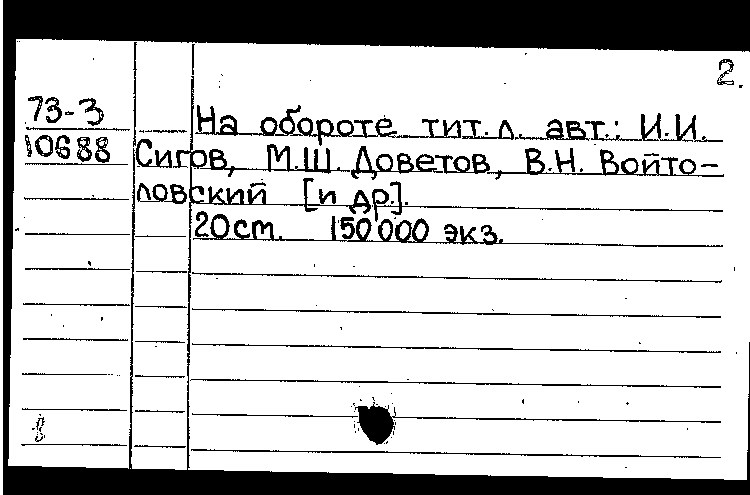 2.
73-3
10688
На обороте тит. л. авт.: И.И.
Сигов, М.Ш. Доветов, В.Н. Войто-
ловский [и др.].
20 см. 150 000 экз.